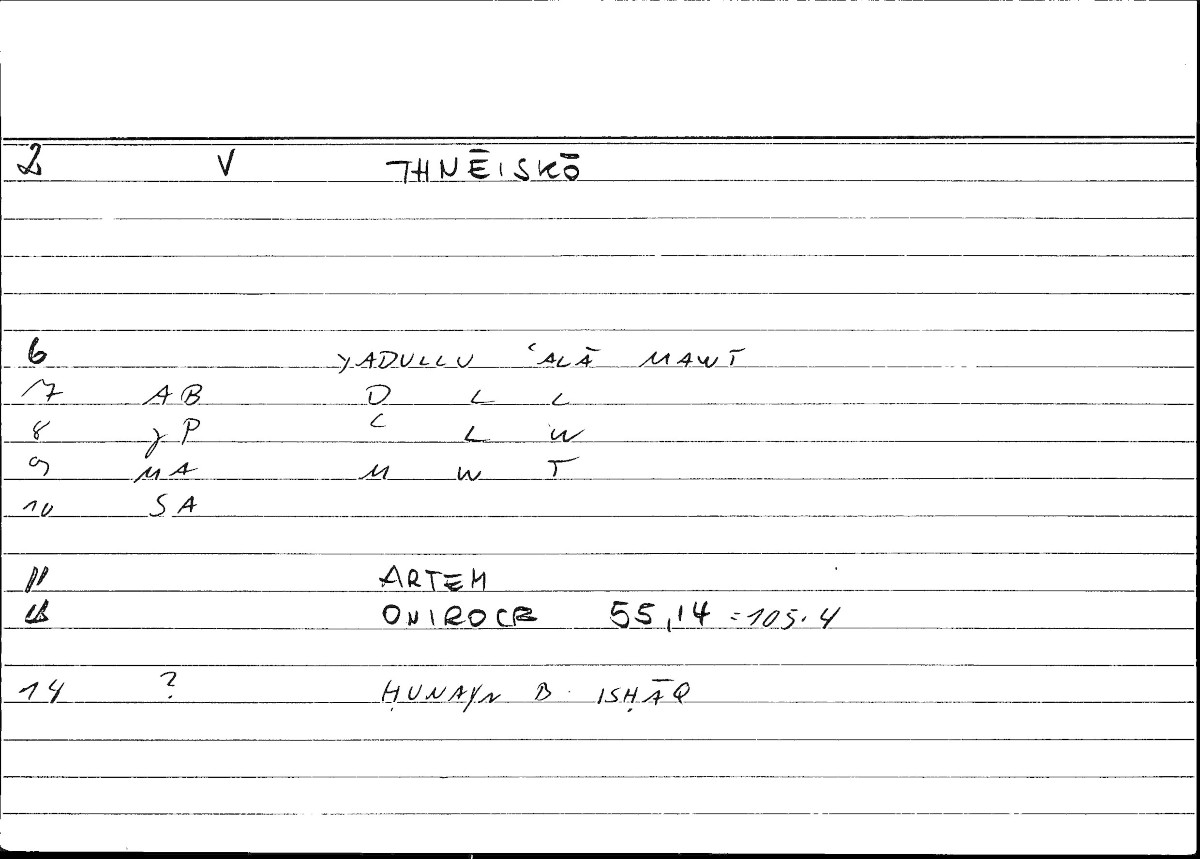 2 V THNĒISKŌ
6 YADULLU ʿALĀ MAWT
7 AB D L L
8 YP ʿ L W
9 MA M W T
10 SA
11 ARTEM
ONIROCR 55,14 = 105.4
14 ? ḤUNAYN B. ISḤĀQ